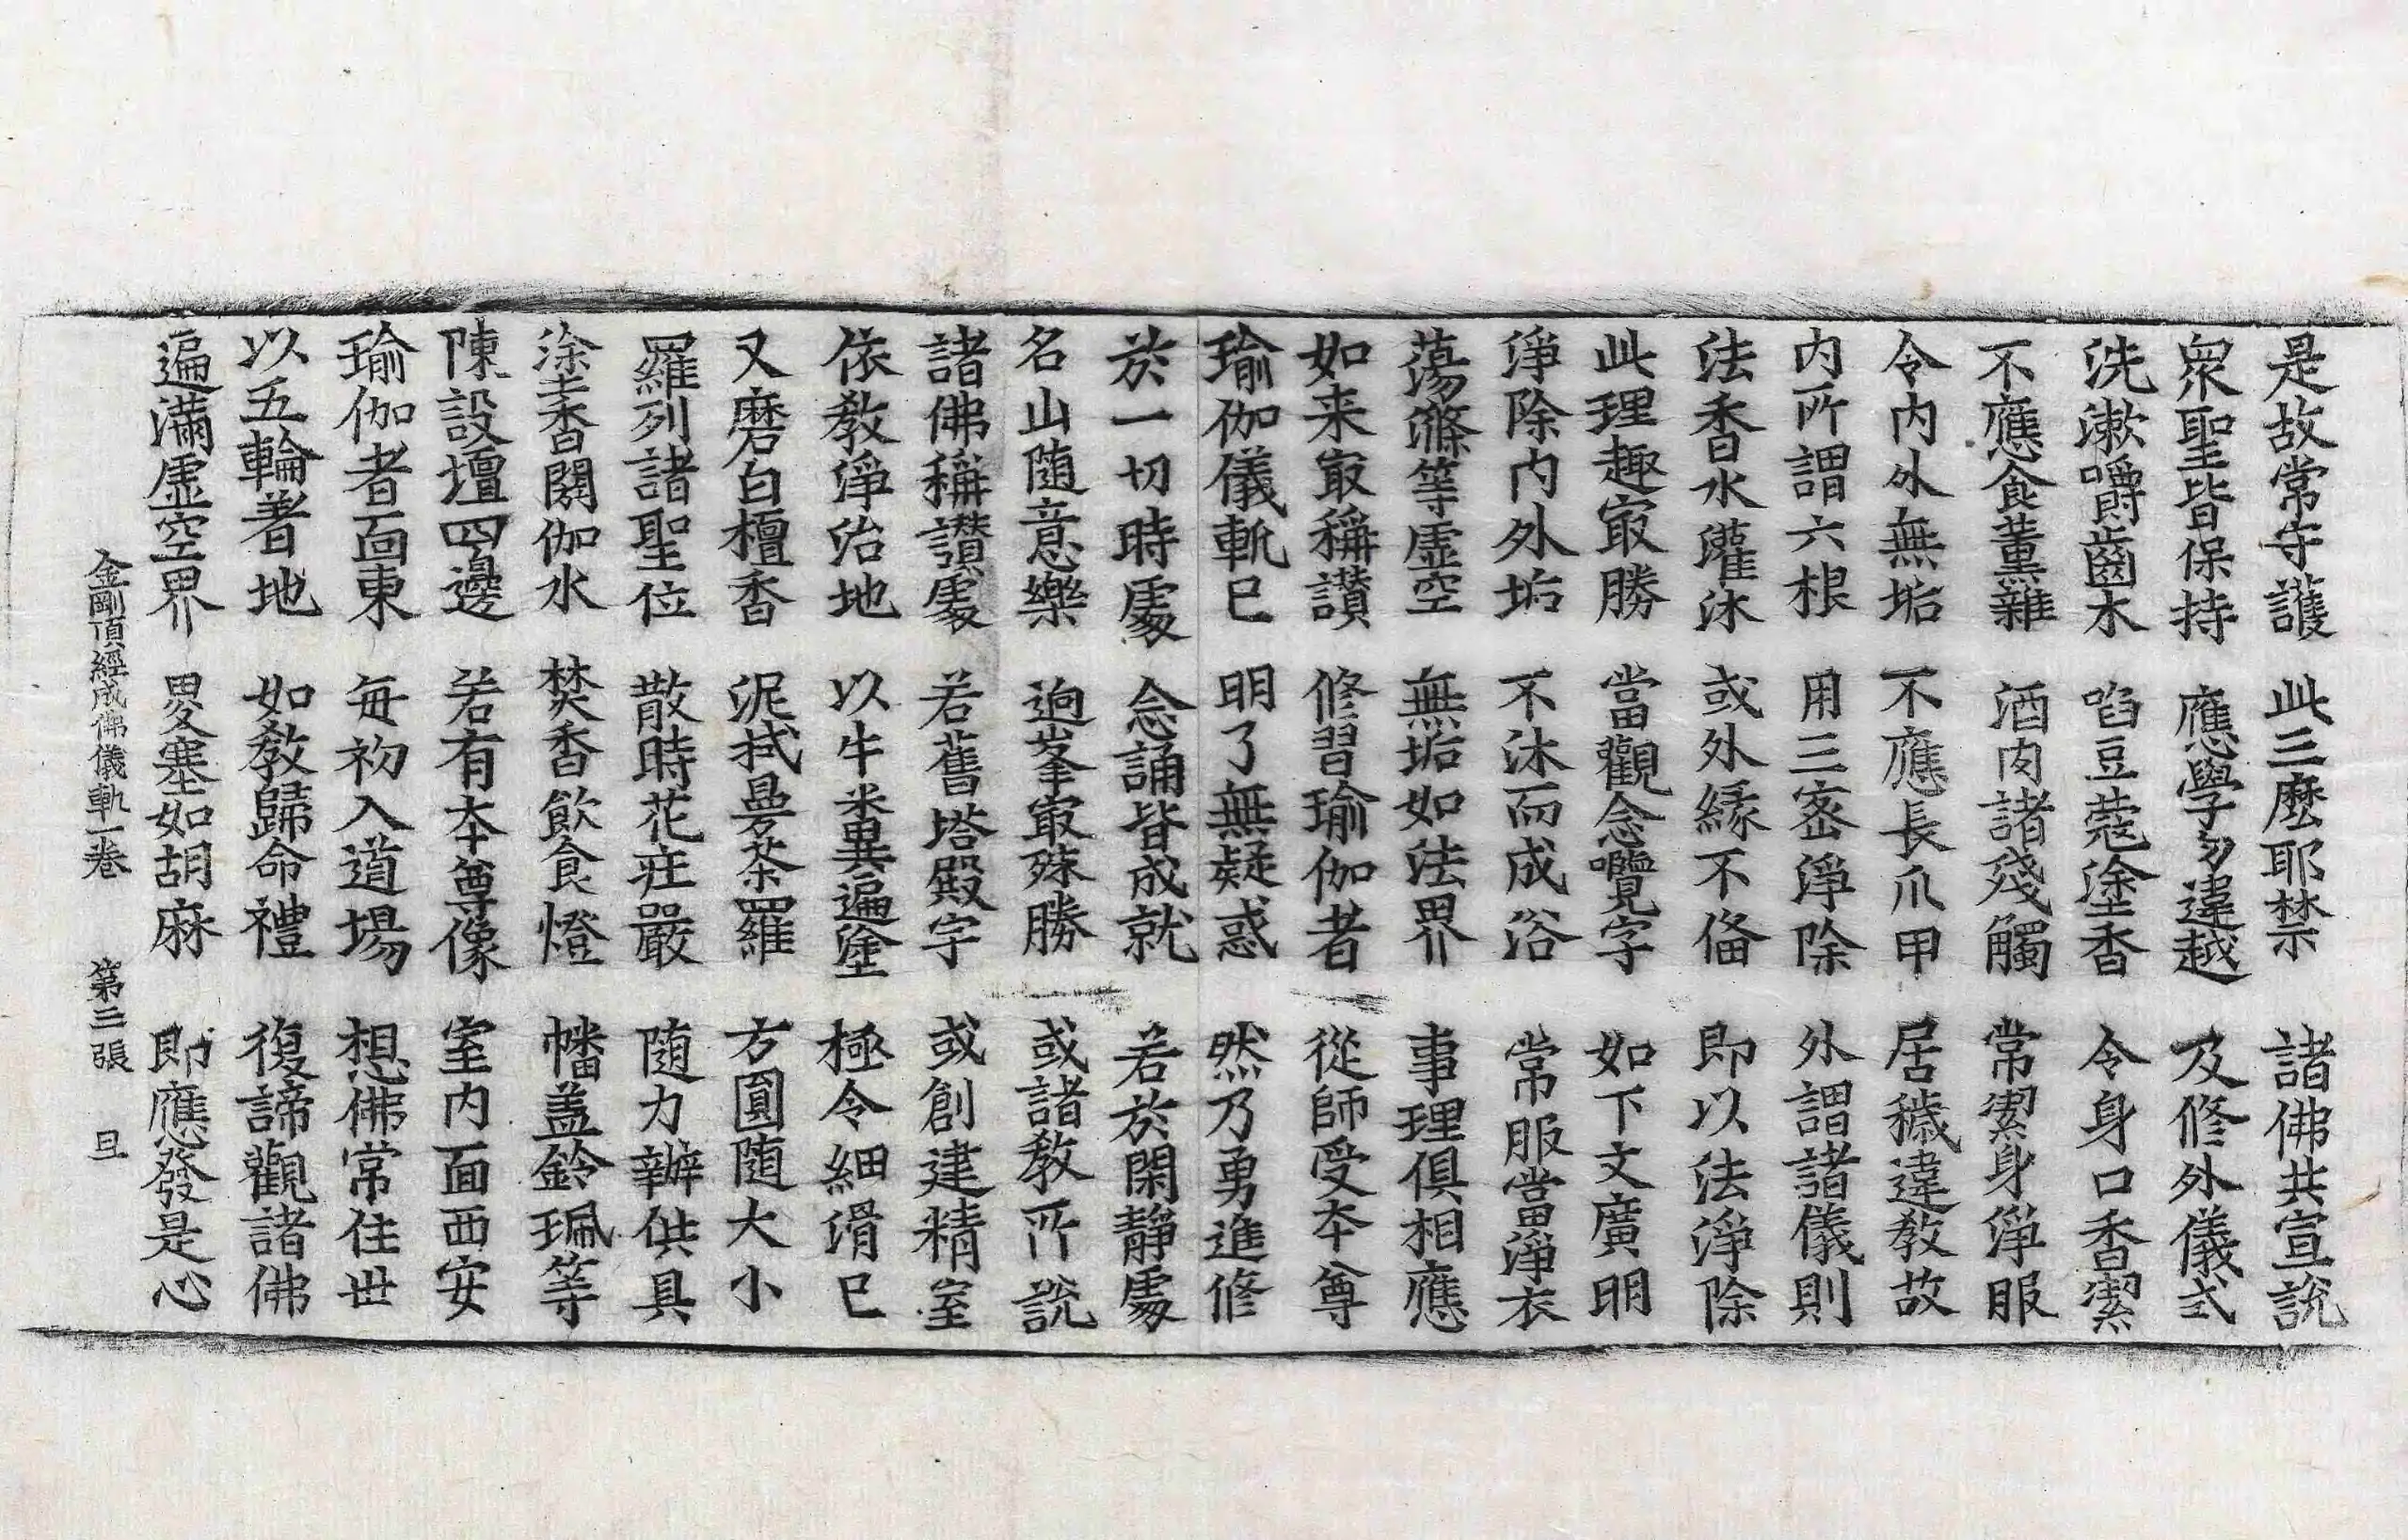 是故常守護 此三麼耶禁 諸佛共宣說
衆聖皆保持 應學勿違越 及修外儀式
洗漱嚼齒木 㗖豆蔻塗香 令身口香潔
不應食薰雜 酒肉諸殘觸 常潔身淨服
令內外無垢 不應長爪甲 居穢違教故
內所謂六根 用三密淨除 外謂諸儀則
法香水灌沐 或外緣不俻 即以法淨除
此理趣㝡勝 當觀念囕字 如下文廣明
淨除內外垢 不沐而成浴 常服當淨衣
蕩滌等虛空 無垢如法界 事理俱相應
如来㝡稱讃 修習瑜伽者 從師受夲尊
瑜伽儀軌已 明了無疑惑 然乃勇進修
於一切時處 念誦皆成就 若於閑靜處
名山随意樂 逈峯㝡殊勝 或諸教所說
諸佛稱讃處 若舊塔殿宇 或創建精室
依教淨治地 以牛糞遍塗 極令細滑已
又磨白檀香 泥拭曼荼羅 方圓随大小
羅列諸聖位 散時花莊嚴 随力辦供具
塗香閼伽水 焚香飲食燈 幡盖鈴珮等
陳設壇四邊 若有夲尊像 室內面西安
瑜伽者面東 每初入道場 想佛常住世
以五輪著地 如教歸命禮 復諦觀諸佛
遍滿虛空界 稠塞如胡麻 即應發是心
金剛頂經成佛儀軌一卷 第三張 旦